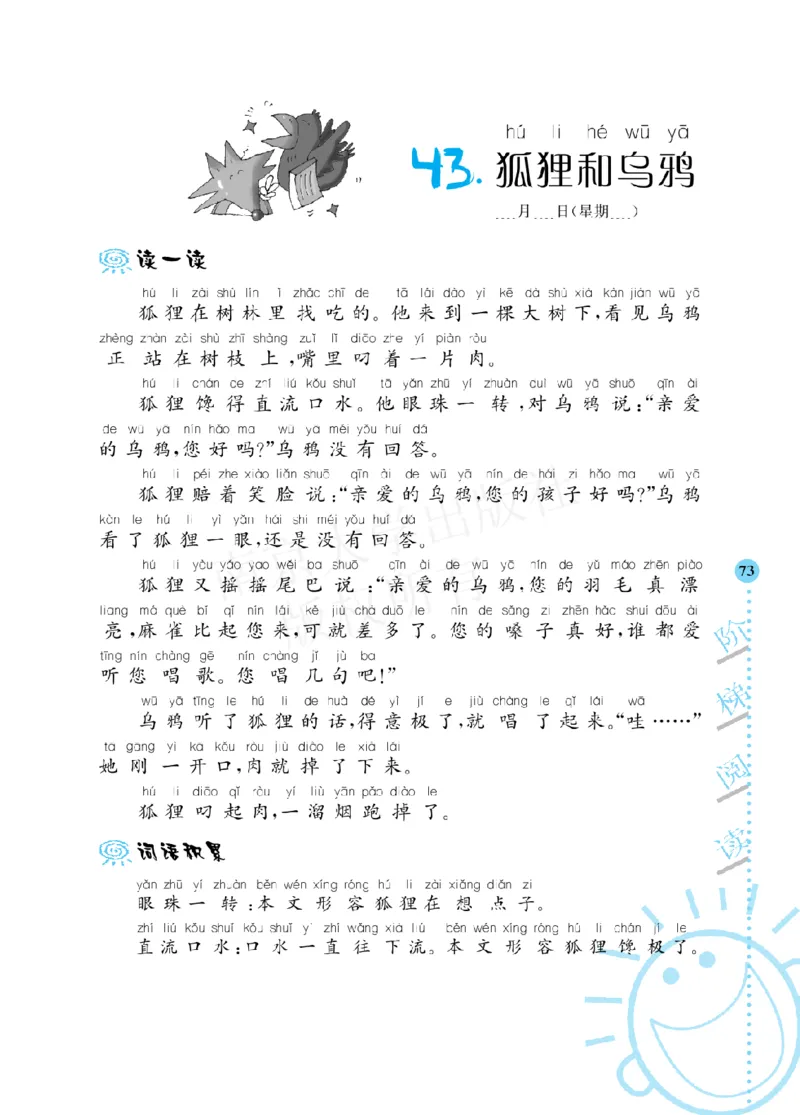 hú li hé wū yā
43. 狐狸和乌鸦
月 日(星期 )
读一读
hú li zài shù lín lǐ zhǎo chī de tā lái dào yì kē dà shù xià kàn jiàn wū yā
狐狸在树林里找吃的。他来到一棵大树下,看见乌鸦
zhèng zhàn zài shù zhī shàng zuǐ lǐ diāo zhe yí piàn ròu
正站在树枝上,嘴里叼着一片肉。
hú li chán de zhí liú kǒu shuǐ tā yǎn zhū yí zhuàn duì wū yā shuō qīn ài
狐狸馋得直流口水。他眼珠一转,对乌鸦说:“亲爱
de wū yā nín hǎo ma wū yā méi yǒu huí dá
的乌鸦,您好吗?”乌鸦没有回答。
hú li péi zhe xiào liǎn shuō qīn ài de wū yā nín de hái zi hǎo ma wū yā
狐狸赔着笑脸说:“亲爱的乌鸦,您的孩子好吗?”乌鸦
kàn le hú li yì yǎn hái shi méi yǒu huí dá
看了狐狸一眼,还是没有回答。
hú li yòu yáo yao wěi ba shuō qīn ài de wū yā nín de yǔ máo zhēn piào
狐狸又摇摇尾巴说:“亲爱的乌鸦,您的羽毛真漂
liang má què bǐ qǐ nín lái kě jiù chà duō le nín de sǎng zi zhēn hǎo shuí dōu ài
亮,麻雀比起您来,可就差多了。您的嗓子真好,谁都爱
tīng nín chàng gē nín chàng jǐ jù ba
听您唱歌。您唱几句吧!”
wū yā tīng le hú li de huà dé yì jí le jiù chàng le qǐ lái wā
乌鸦听了狐狸的话,得意极了,就唱了起来。“哇……”
tā gāng yì kāi kǒu ròu jiù diào le xià lái
她刚一开口,肉就掉了下来。
hú li diāo qǐ ròu yí liù yān pǎo diào le
狐狸叼起肉,一溜烟跑掉了。
词语积累
yǎn zhū yí zhuàn běn wén xíng róng hú li zài xiǎng diǎn zi
眼珠一转:本文形容狐狸在想点子。
zhí liú kǒu shuǐ kǒu shuǐ yì zhí wǎng xià liú běn wén xíng róng hú li chán jí le
直流口水:口水一直往下流。本文形容狐狸馋极了。
73
阶
梯
阅
读